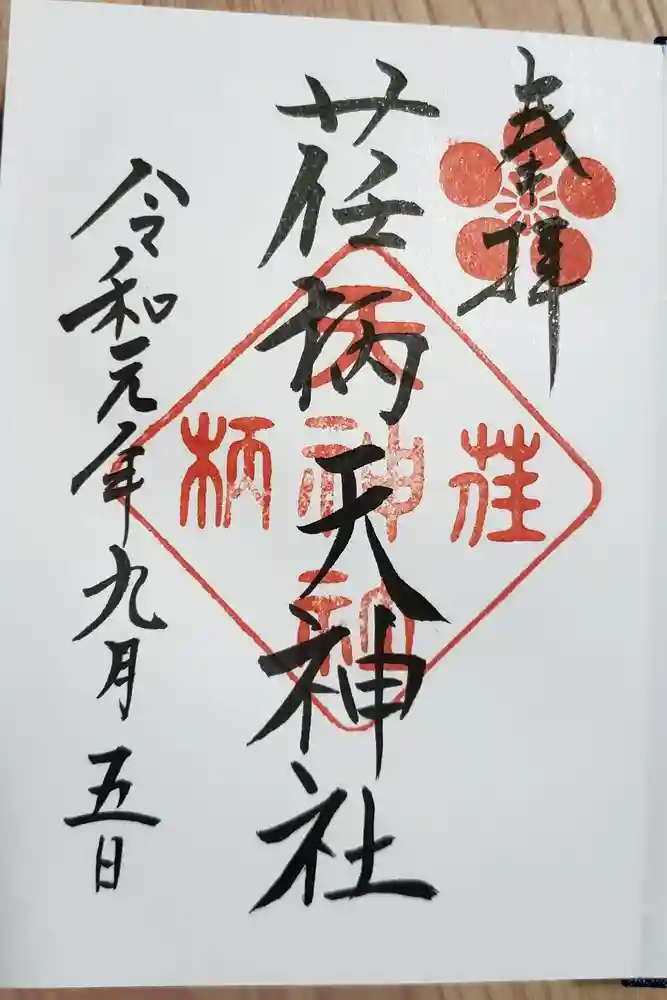 奉拝
荏柄天神社
荏
柄
天
神
社
令和元年九月五日